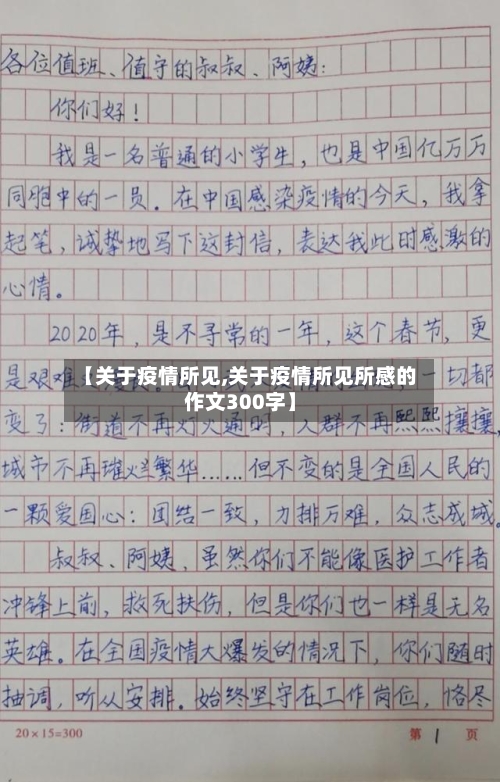 各位值班、值守的叔叔、阿姨:
你们好!
我是一名普通的小学生,也是中国亿万万
同胞中的一员。在中国感染疫情的今天,我拿
起笔,诚挚地写下这封信,表达我此时感激的
心情。
2020年,是不寻常的一年,这个春节,更
是艰难
【关于疫情所见,关于疫情所见所感的
作文300字】
一切都
变了:街道不再灯火通明,人群不再熙熙攘攘,
城市不再璀烂繁华……但不变的是全国人民的
一颗爱国心:团结一致,力排万难,众志成城。
叔叔、阿姨,虽然你们不能像医护工作者
冲锋上前,救死扶伤,但是你们也一样是无名
英雄。在全国疫情大爆发的情况下,你们随时
抽调,听从安排。始终坚守在工作岗位,恪尽
20×15=300 第 1 页